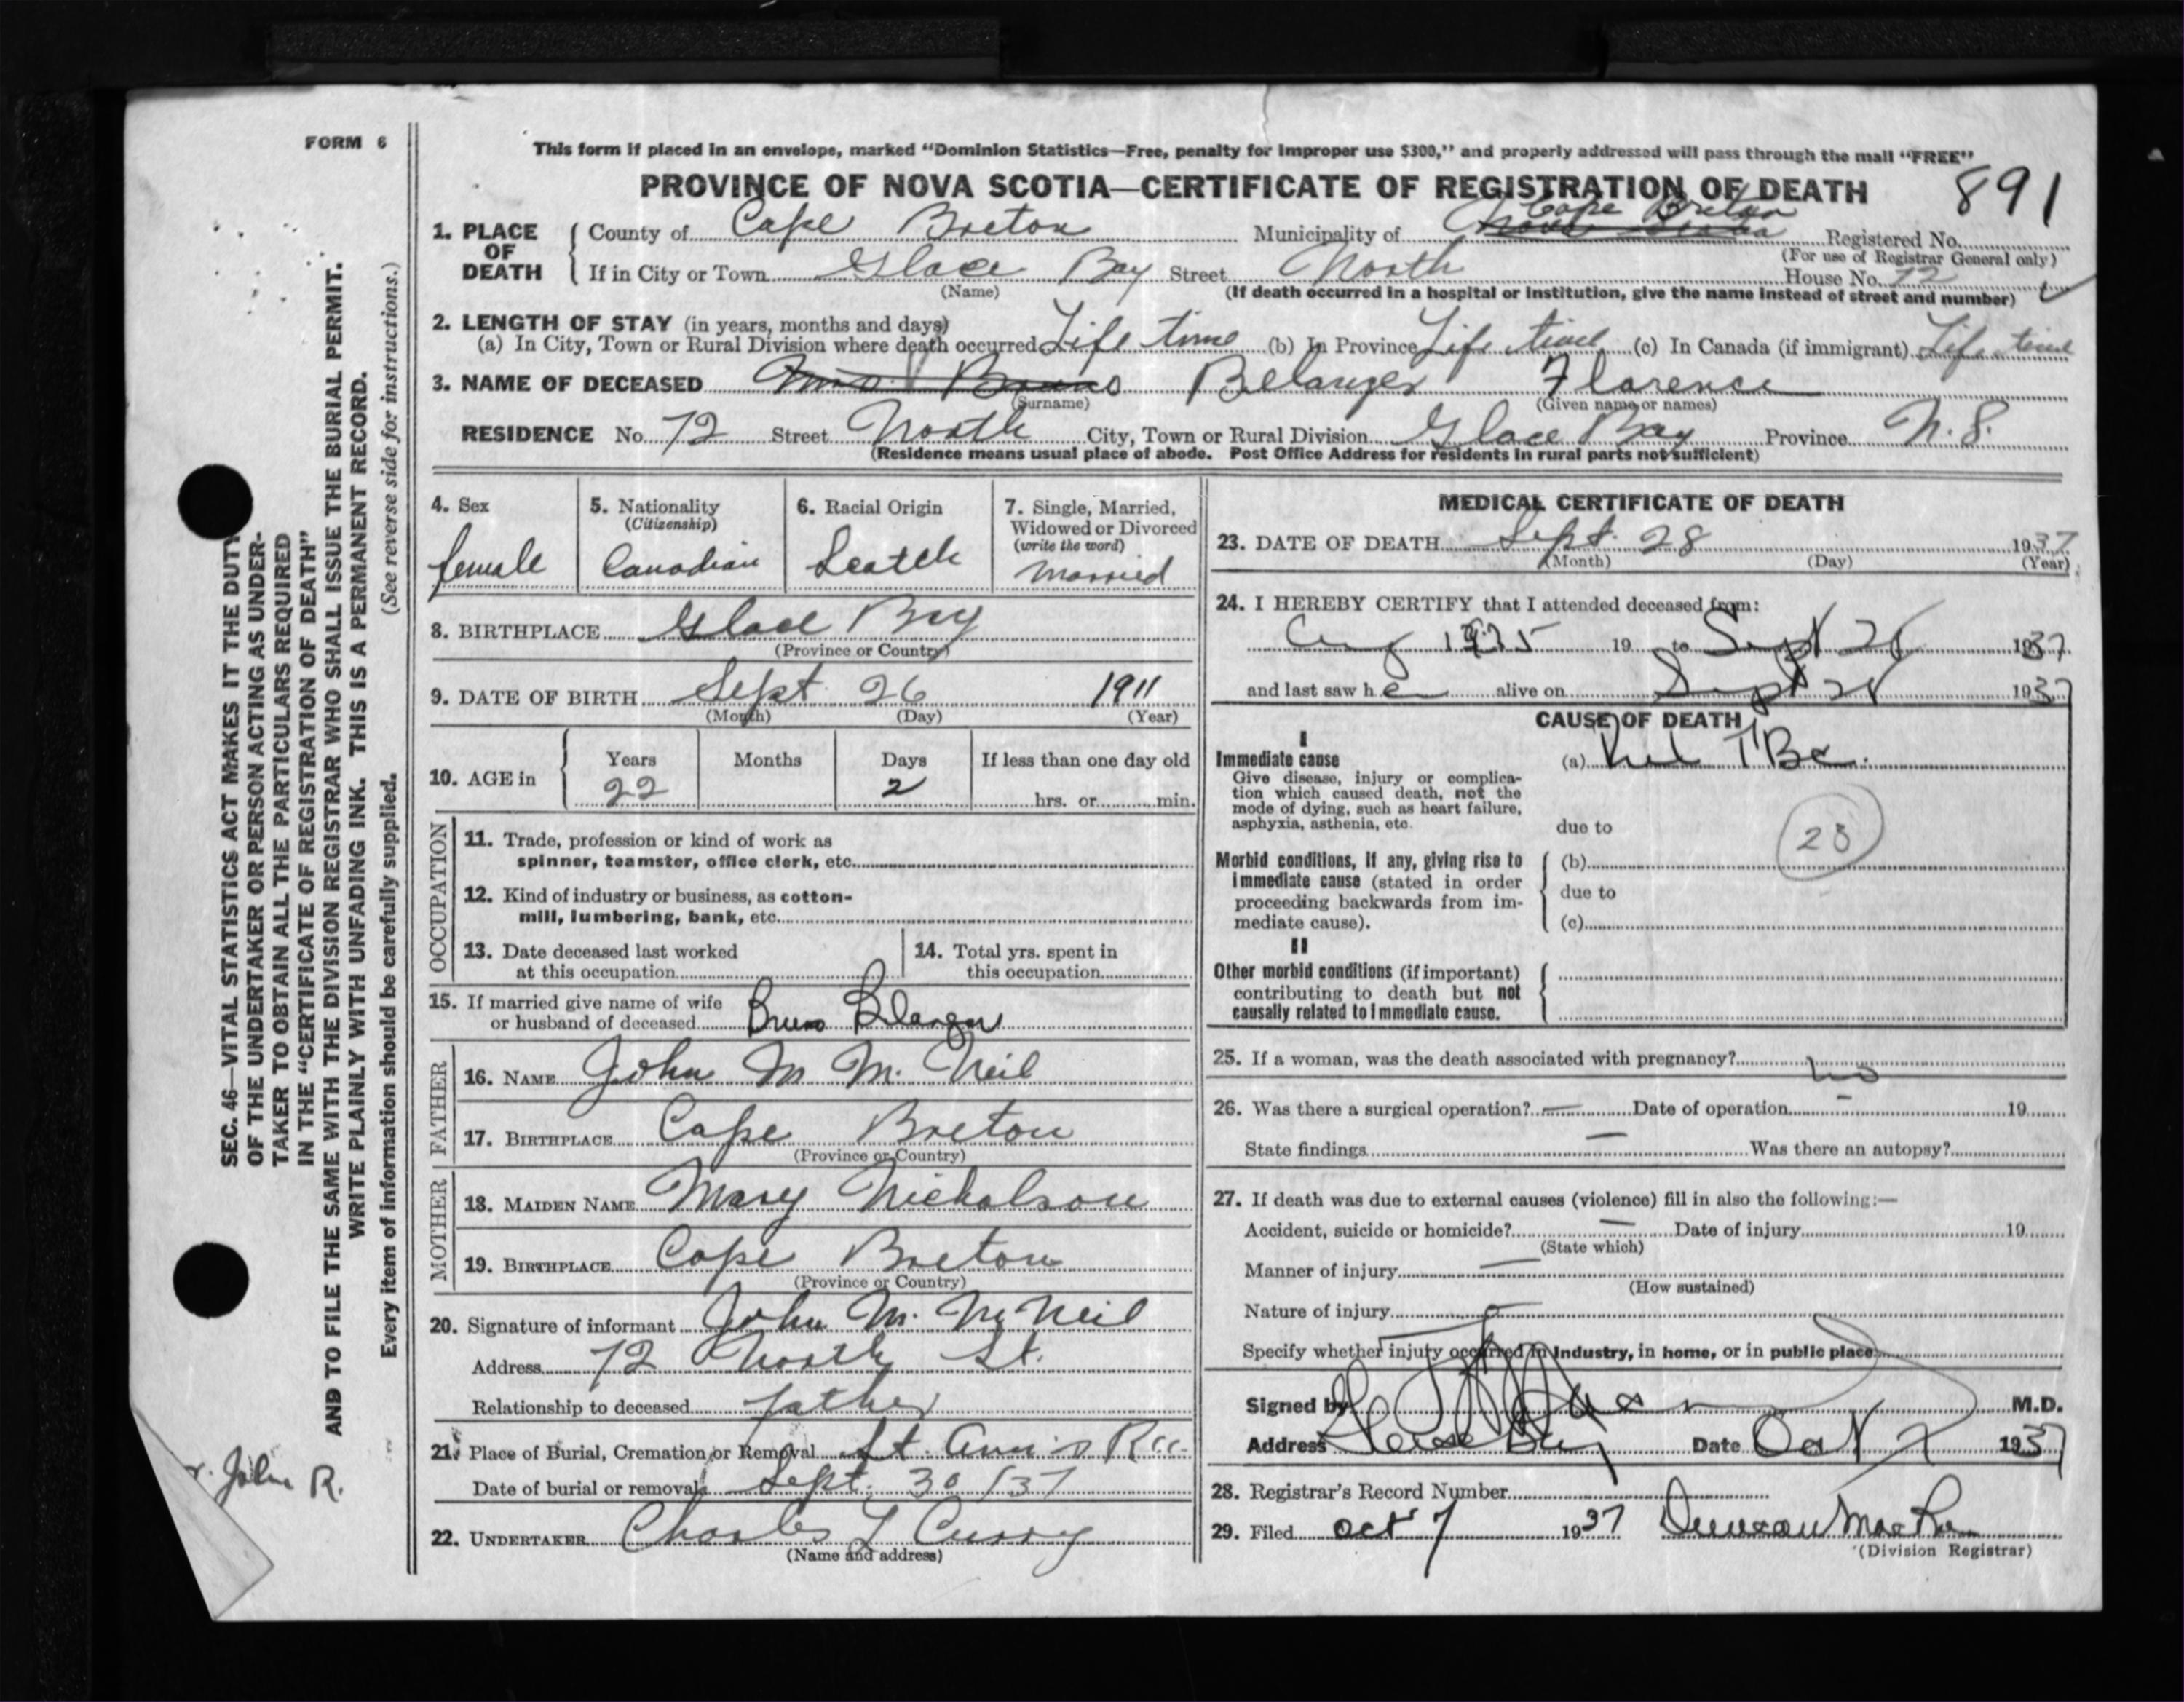 FORM 6
This form if placed in an envelope, marked "Dominion Statistics—Free, penalty for improper use $300," and properly addressed will pass through the mail "FREE"
PROVINCE OF NOVA SCOTIA—CERTIFICATE OF REGISTRATION OF DEATH 891
1. PLACE OF DEATH County of Cape Breton Municipality of Cape Breton Registered No.
(For use of Registrar General only)
If in City or Town Glace Bay Street North House No. 72
(Name) (If death occurred in a hospital or institution, give the name instead of street and number)
2. LENGTH OF STAY (in years, months and days)
(a) In City, Town or Rural Division where death occurred Life time (b) In Province Life time (c) In Canada (if immigrant) Life time
3. NAME OF DECEASED Belanger Florence
(Surname) (Given name or names)
RESIDENCE No. 72 Street North City, Town or Rural Division Glace Bay Province N.S.
(Residence means usual place of abode. Post Office Address for residents in rural parts not sufficient)
4. Sex female
5. Nationality (Citizenship) Canadian
6. Racial Origin Scotch
7. Single, Married, Widowed or Divorced (write the word) married
8. BIRTHPLACE Glace Bay
(Province or Country)
9. DATE OF BIRTH Sept 26 1911
(Month) (Day) (Year)
10. AGE in Years 22 Months Days 2 If less than one day old hrs. or min.
OCCUPATION
11. Trade, profession or kind of work as
spinner, teamster, office clerk, etc.
12. Kind of industry or business, as cotton-
mill, lumbering, bank, etc.
13. Date deceased last worked
at this occupation
14. Total yrs. spent in
this occupation
15. If married give name of wife
or husband of deceased Bruno Belanger
FATHER
16. NAME John M Mc Neil
17. BIRTHPLACE Cape Breton
(Province or Country)
MOTHER
18. MAIDEN NAME Mary Nicholson
19. BIRTHPLACE Cape Breton
(Province or Country)
20. Signature of informant John M. McNeil
Address 72 North St.
Relationship to deceased father
21. Place of Burial, Cremation or Removal St. Ann's
Date of burial or removal Sept. 30/37
22. UNDERTAKER Charles L Curry
(Name and address)
MEDICAL CERTIFICATE OF DEATH
23. DATE OF DEATH Sept. 28 1937
(Month) (Day) (Year)
24. I HEREBY CERTIFY that I attended deceased from:
Aug 19 to Sept 28 1937
and last saw her alive on Sept 28 1937
CAUSE OF DEATH
I
Immediate cause (a) TBc.
Give disease, injury or complica-
tion which caused death, not the
mode of dying, such as heart failure,
asphyxia, asthenia, etc.
due to
23
Morbid conditions, if any, giving rise to (b)
immediate cause (stated in order
proceeding backwards from im-
mediate cause).
due to
(c)
II
Other morbid conditions (if important)
contributing to death but not
causally related to immediate cause.
25. If a woman, was the death associated with pregnancy? no
26. Was there a surgical operation? — Date of operation — 19
State findings — Was there an autopsy?
27. If death was due to external causes (violence) fill in also the following:—
Accident, suicide or homicide? — Date of injury 19
(State which)
Manner of injury —
(How sustained)
Nature of injury
Specify whether injury occurred in industry, in home, or in public place
Signed by M.D.
Address Glace Bay Date Oct 7 1937
28. Registrar's Record Number
29. Filed Oct 7 1937 Duncan MacRae
(Division Registrar)
SEC. 46—VITAL STATISTICS ACT MAKES IT THE DUTY
OF THE UNDERTAKER OR PERSON ACTING AS UNDER-
TAKER TO OBTAIN ALL THE PARTICULARS REQUIRED
IN THE "CERTIFICATE OF REGISTRATION OF DEATH"
AND TO FILE THE SAME WITH THE DIVISION REGISTRAR WHO SHALL ISSUE THE BURIAL PERMIT.
WRITE PLAINLY WITH UNFADING INK. THIS IS A PERMANENT RECORD.
Every item of information should be carefully supplied. (See reverse side for instructions.)
John R.